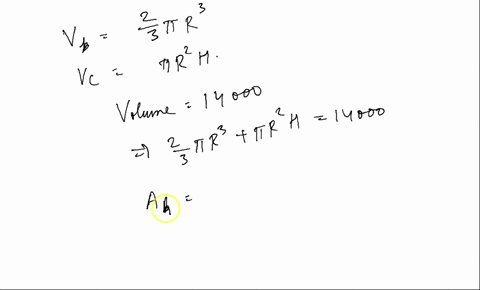 V_h = 2/3 πR³
V_C = πR²H.
Volume = 14000
⇒ 2/3 πR³ + πR²H = 14000
A_h =